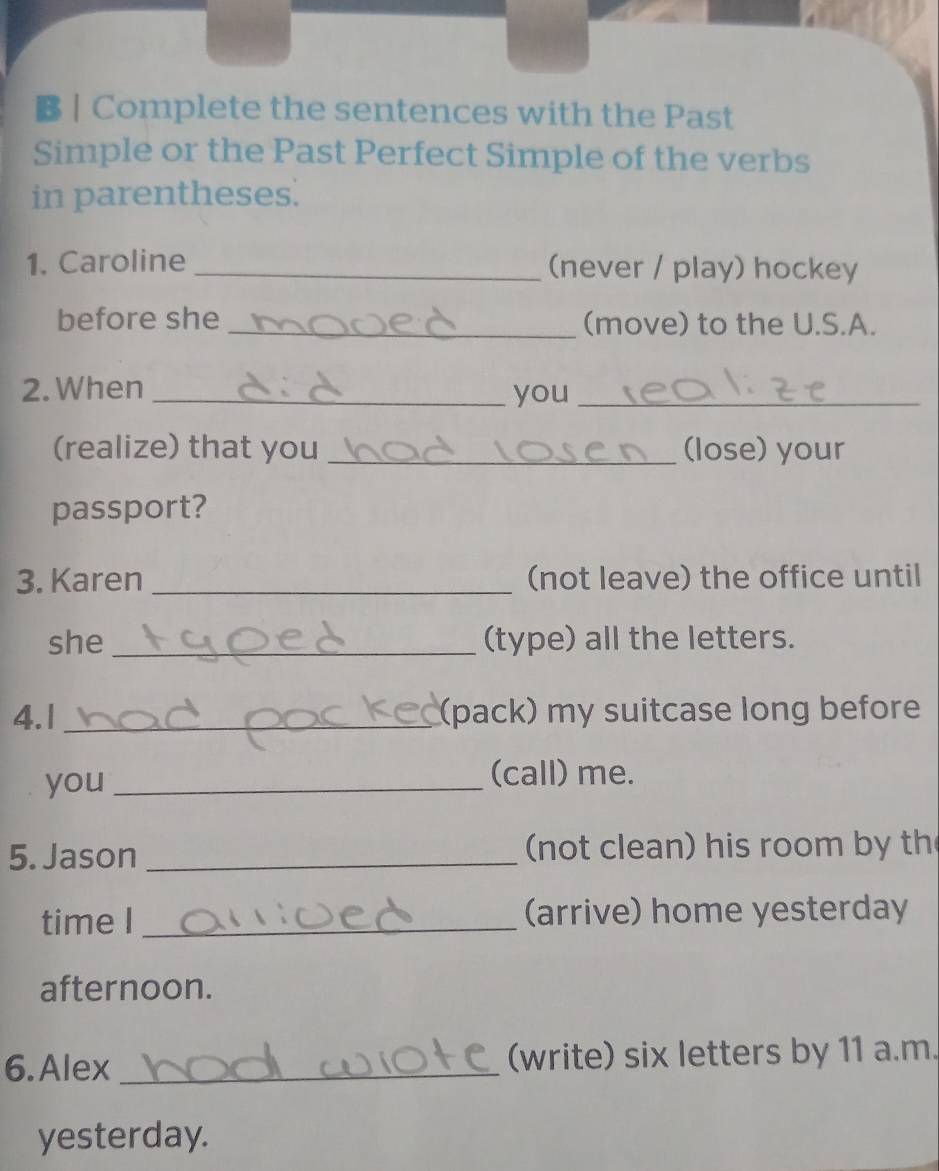 B | Complete the sentences with the Past
Simple or the Past Perfect Simple of the verbs
in parentheses.
1. Caroline ____________ (never / play) hockey
before she moved (move) to the U.S.A.
2. When did you realize
(realize) that you had losen (lose) your
passport?
3. Karen ____________ (not leave) the office until
she typed (type) all the letters.
4. I had packed (pack) my suitcase long before
you ____________ (call) me.
5. Jason ____________ (not clean) his room by the
time I arrived (arrive) home yesterday
afternoon.
6. Alex had wrote (write) six letters by 11 a.m.
yesterday.